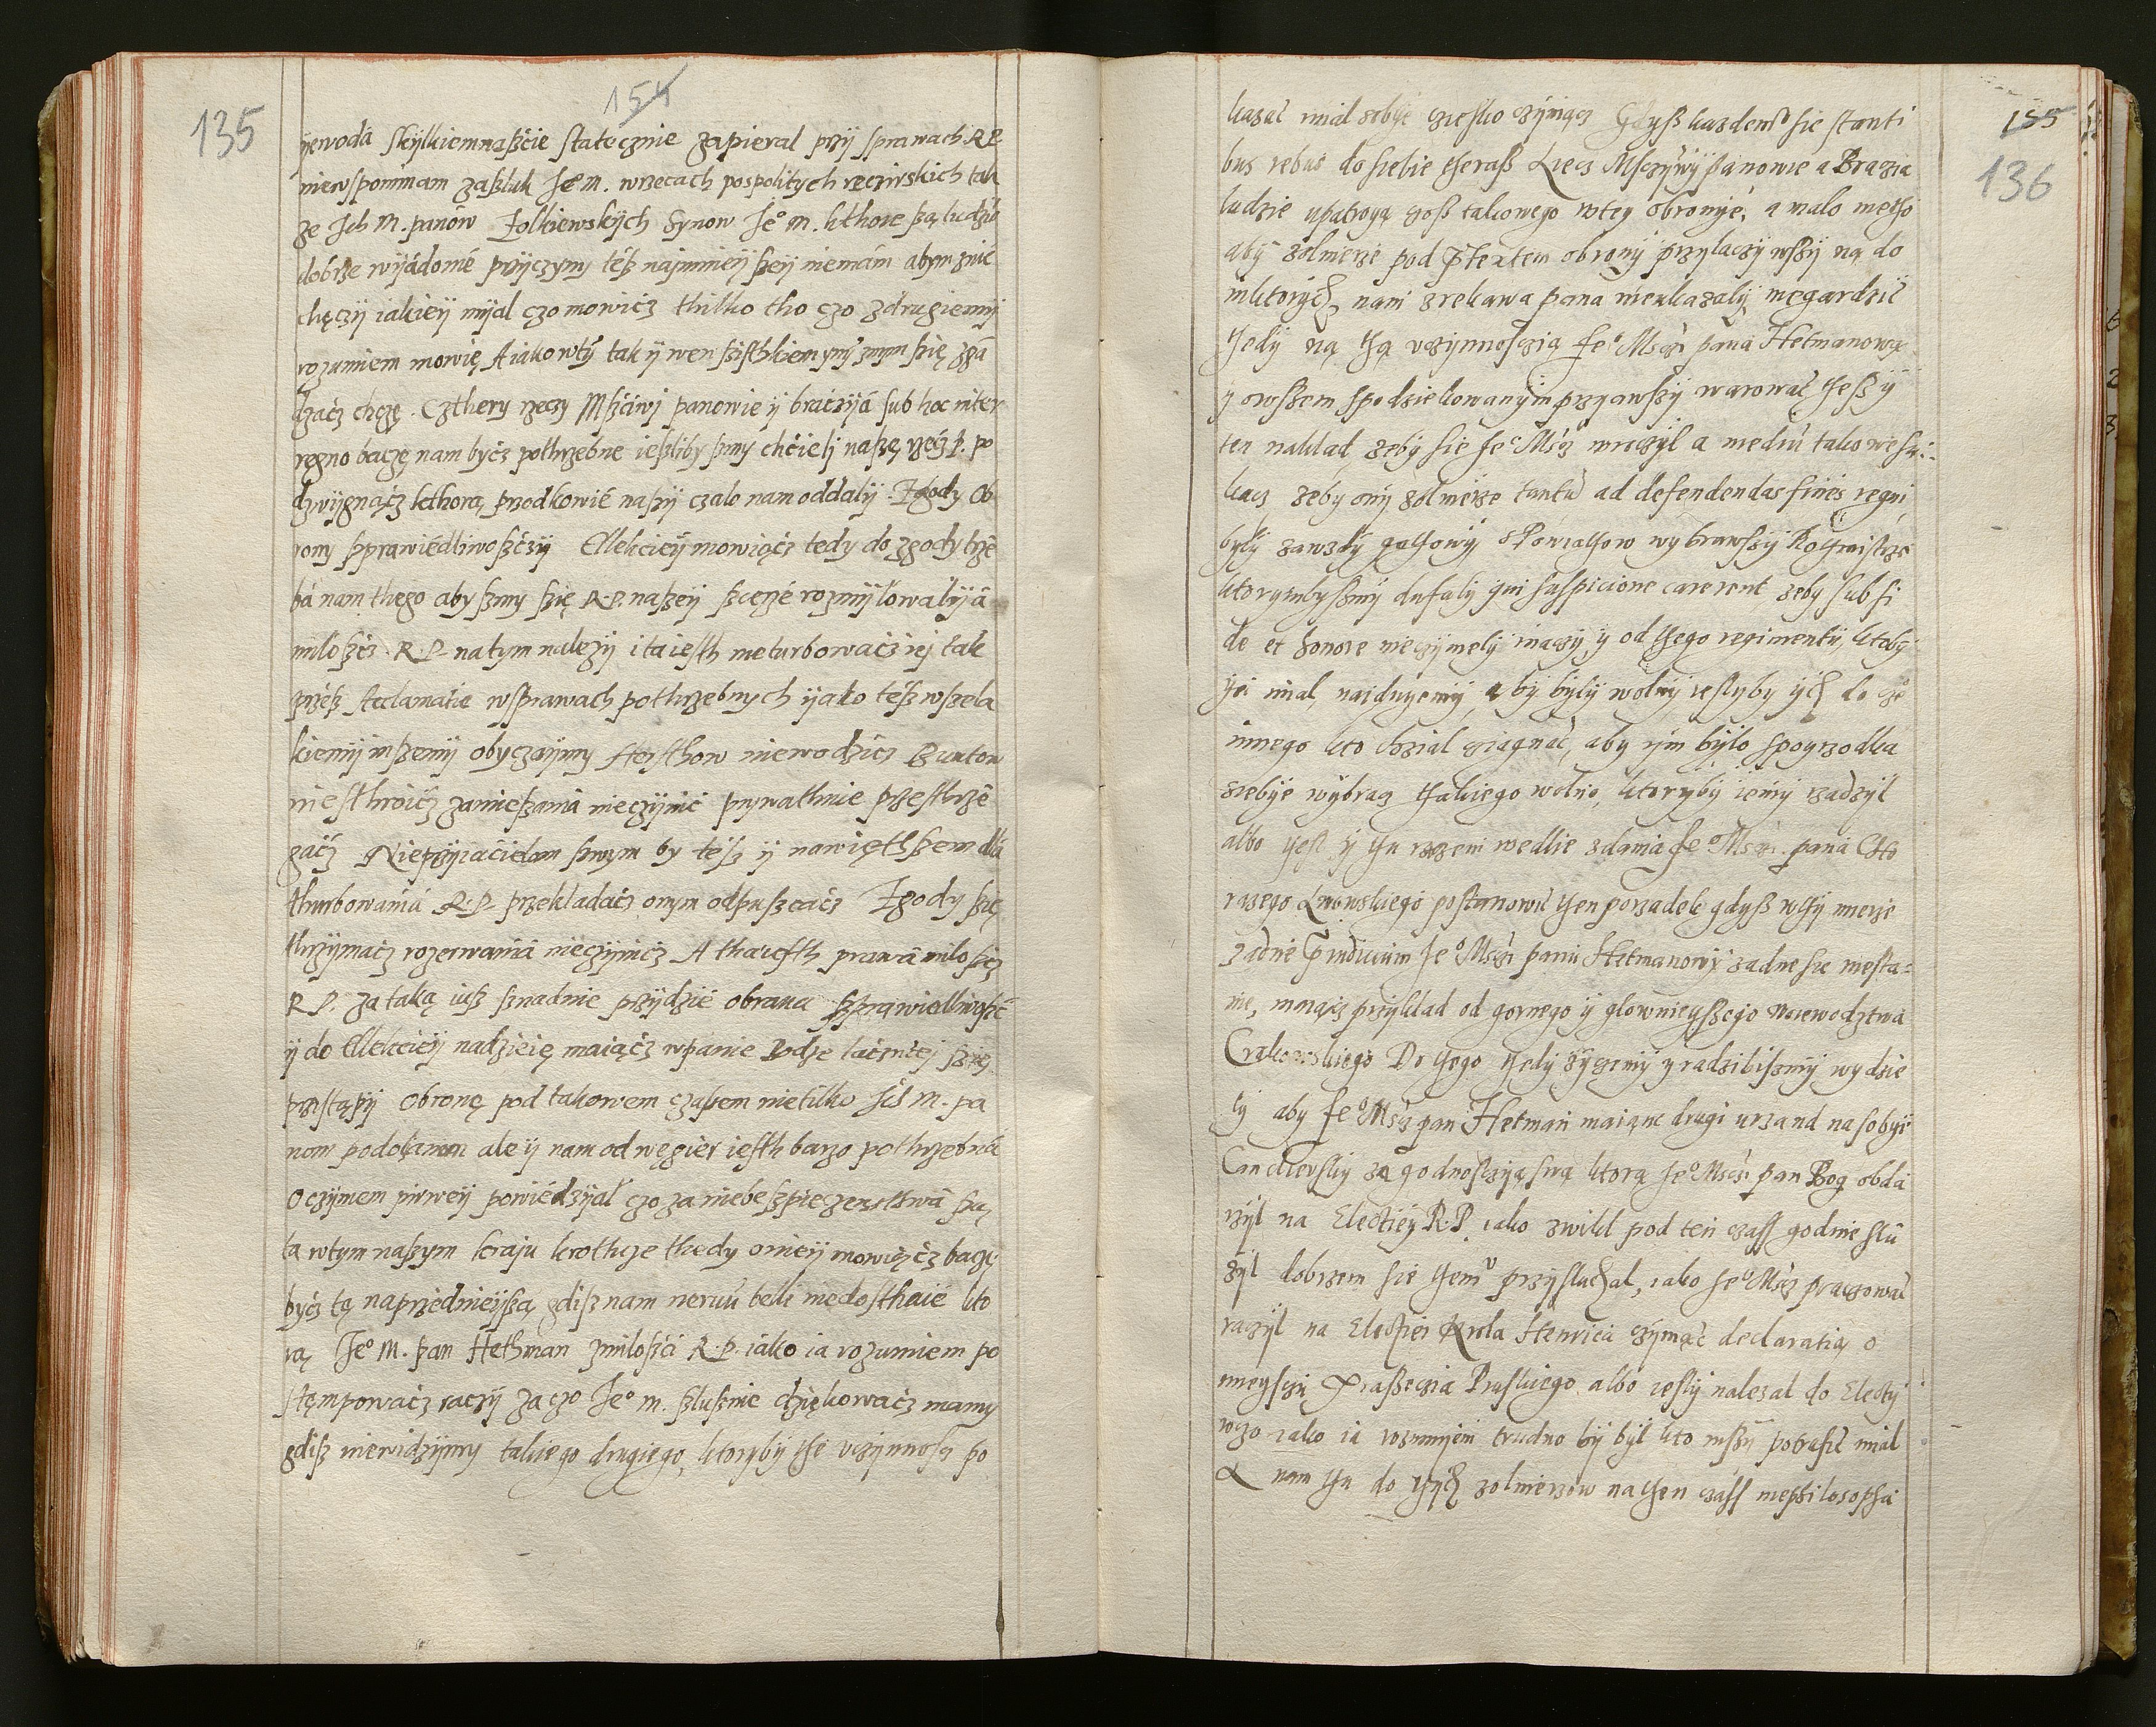 135
154
ÿewoda skÿlkiemnaßcie statecznie zapieral przÿ sprawach R.P.
niewspominam zaßluk Je° M. wrzecach pospolitych rzecziwskich tak
ze Ich M. panów Zolkiewskÿch Synow Je° M. kthore ßą ludziō
dobrze wÿádomé przÿczyny téß najmnieÿ ßeÿ niemám abym znie
chęczÿ iakieÿ mÿal czo mowićz thilko tho czo zdrugiemÿ
rozumiem mowię A iako wtÿ tak ÿ wen ßisthkiem ynÿ znym ßię zgá
dzaćz chczę. Czthery rzeczy Mßćiwj panowie ÿ braćzÿá sub hoc inter
regno baczę nam byćz pothrzebne ießliby ßmy chćielj naßę rzećz p. po
dzwÿgnąćz kthorą przodkowié naßÿ czalo nam oddalÿ. Zgody Ob
rony ßprawiédliwoßćzÿ Ellekcieÿ mowiąćz tedy do zgody trze
bá nam thego aby ßmy ßię R.P. naßeÿ ßczeré rozmÿlowalÿ á
miloßćz R.P. na tym należÿ i ta iesth neturbowaćz iej tak
przéß Acclamatie wßprawach pothrzebnych ÿako téß wßela
kiemÿ inßemÿ obyczaÿmy Aersthow niewodzićz Buntow
niesthroićz zamießania nieczÿnić prywathnie przesthrze
gaćz Nieprzÿiaćielom ßwym by téß ÿ nawięthßem dla
thurbowániá R.P. przekladaćz onym odpußczaćz Zgody ßię
thrzÿmaćz rozerwaniá nieczÿnićz A tha iesth prawá miloßcz
R P. za taką iuß snadnie przÿdzié obrana ßprawiedliwoßć
ÿ do Ellekcieÿ nadzieię maiąćz wpanie Bodze laćznÿej ßię
przistąpÿ Obronę pod takowem czaßem nietilko Ich M. pa
nom podolanom ale ÿ nam od węgier iesth barzo pothrzebná
O czÿmem pirweÿ powiédzÿal czo za niebeßpieczensthwá ßą
tą wtym naßym kraju krothcze thedy onieÿ mowiączćz baczę
byćz tą naprzednieÿßą gdiß nam nerwú belli niedosthaié kto
rą Je° M. pan Hethman zmiloßći R.P. iako ia rozumiem po
stęmpowaćz raczÿ za czo Je° m. ßlußnie dziękowaćz mamy
gdiß niewidzÿmy takiego drugiego, ktorybÿ the uczÿnnoscz po
155
136
kazać mial sobÿe ciesko czÿniącz Gdyß kazdemu sie stanti
bus rebus do siebie theraß Liecz Msczÿwÿ panowie a Brazia
ludzie upatroyą coß takowego wtey obronÿé, a malo metho
abÿ zolnierze pod p̄textem obronÿ przÿlaczÿwßÿ ną do
niktorÿch nam zrekawa pana nieukazalÿ niegardzić
thedÿ ną thą vczÿnnosczią Je° Msczi pana Hetmanową
ÿ owßzem spodziekowanÿm przyawßzÿ warować theß ÿ
ten naklad, zebÿ sie Je° Mscz wroczÿl a mediū takowe szu-
kacz zeby onÿ zolnierze tantū ad defendendas fines regni,
bÿlÿ zawzdÿ gothowÿ, s Powiathow wybrawszÿ Rothmistrze
ktorymbyßmÿ dufaly qui suspicione carerent zeby sub fi
de et honore nieczÿnelÿ inaczÿ, ÿ od thego regimentu, ktobÿ
ÿei mial, naiduyemÿ, abÿ bÿlÿ wolnÿ ieslyby ÿch do cze
innego kto chcial ciągnać, aby ÿm bÿlo spoyrzodka
siebÿe wÿbracz thakiego wolno, ktorÿbÿ iemÿ rzadzÿl
albo yest ÿ thu rzeczeni wedlie zdania Je° Msczi pana Cho
razego Lwowskiego postanowić then porzadek gdÿß wthÿ mierze
zadne p̄iudicium Je° Msczi panu Hetmanowÿ zadne sie niesta-
nie, maiącz przÿklad od gornego ÿ glownieyszego woiewodztwa
Crakowskiego Do thego thedÿ zÿczemÿ ÿ radzibiszmÿ wydzie
lÿ aby Je° Mscz pan Hetman maiąnc drugi urzand na sobÿe
Cancliersky za godnosczÿą swą ktorą Je° Msczi pan Bog obda
rzÿl na Electiey R.P. iako zwikl pod ten czass godnie slu
żÿl dobrzem sie themᵛ przÿsluchal, iako Je° Mscz pracowac
raczÿl na Electiei Krola Henrica czÿniąc declaratią o
mieÿsczu Xiążęczia Pruskiego albo ieslÿ nalezal do Electÿ
iego iako ia rozumÿem trudno bÿ bÿl kto inßÿ potrafić mial
A nam thu do thÿch zolnierzow na then czass niephilosopha